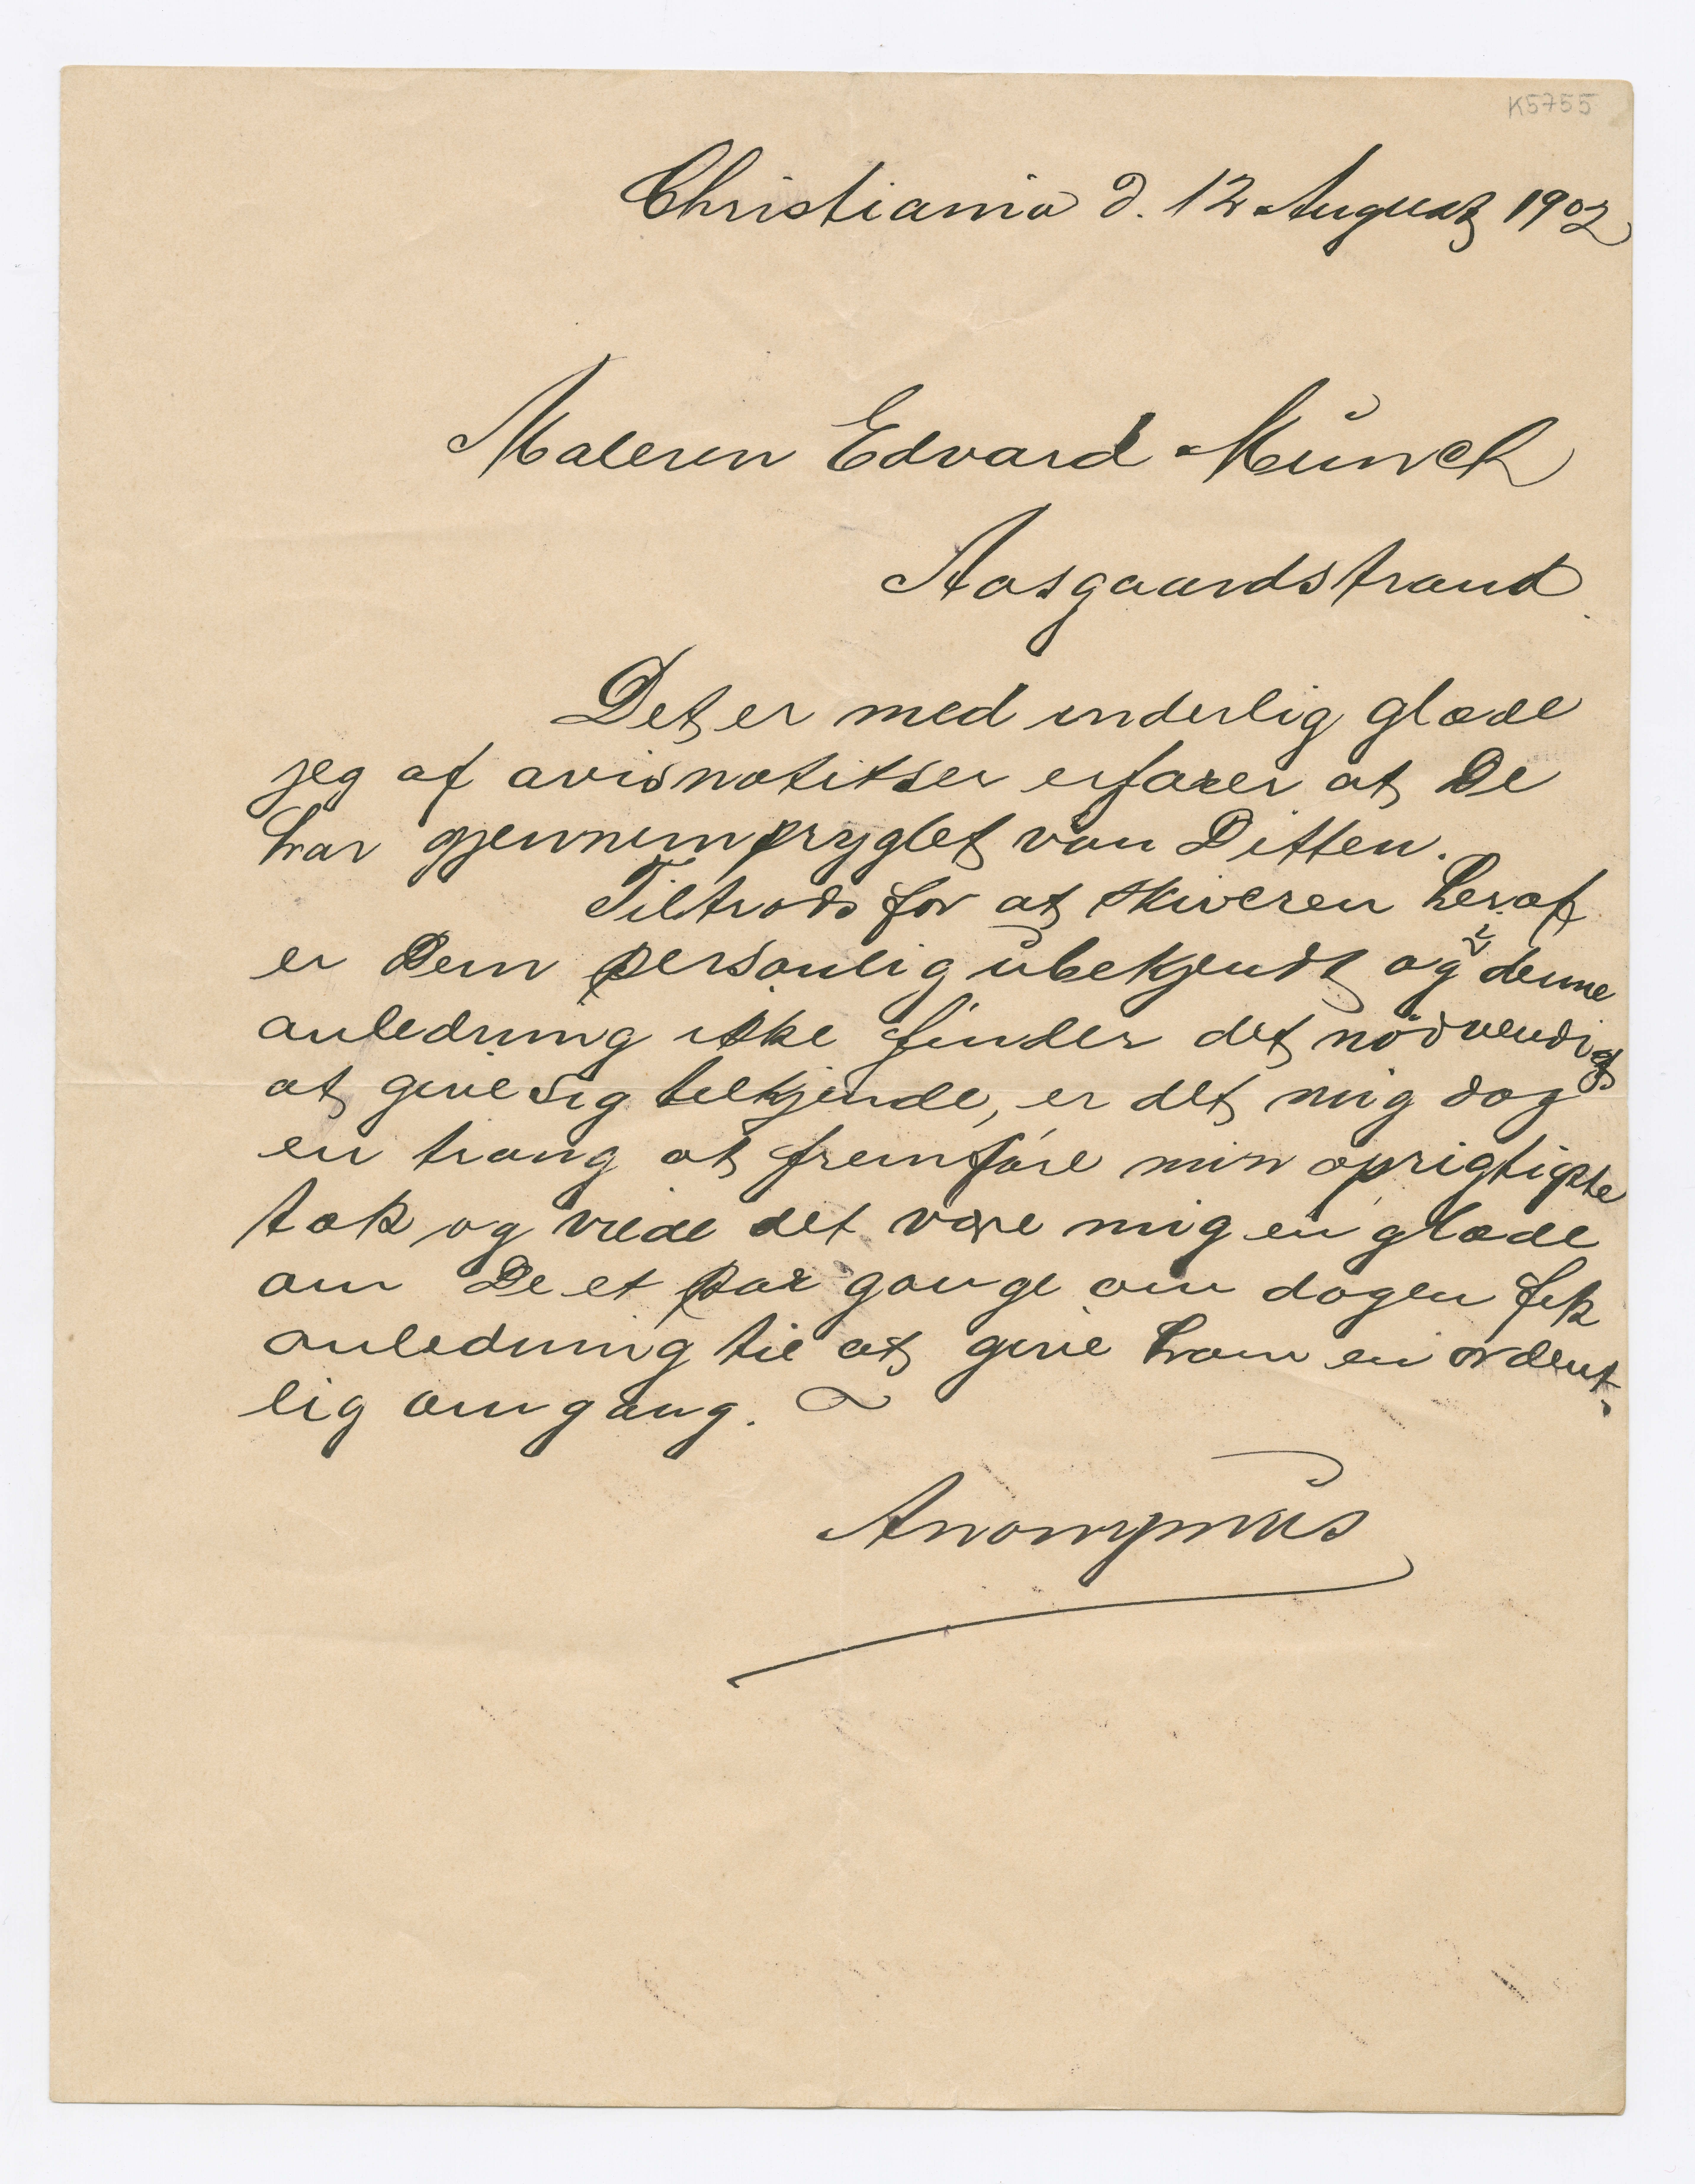 K5755
Christiania d. 12 August 1902
Maleren Edvard Munch
Aasgaardstrand.
Det er med inderlig glæde
jeg af avisnotitser erfarer at De
har gjennempryglet van Ditten.
Tiltrods for at skiveren heraf
er Dem personlig ubekjendt og i denne
anledning ikke finder det nödvendigt
at give sig tilkjende, er det mig dog
en trang at fremføre min oprigtigste
tak og vilde det være mig en glæde
om De et par gange om dagen fik
anledning til at give ham en ordent-
lig omgang.
Anonymus